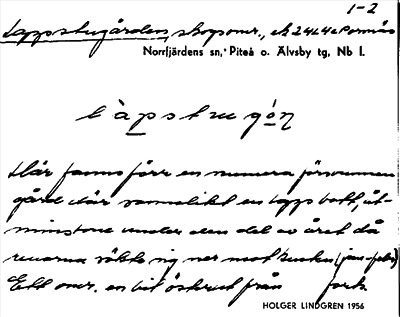 1-2
Lappstugården, skogsomr., ek 24L4e Pormås
Norrfjärdens sn, Piteå o. Älvsby tg, Nb l.
låpstrugón
Här fanns förr en numera försvunnen
gård där vanligtvis en lapp bott, åt-
minstone under den del av året då
renarna sökte sig ner mot kusten (jan-febr)
Ett omr. en bit österut från fork.
HOLGER LINDGREN 1956